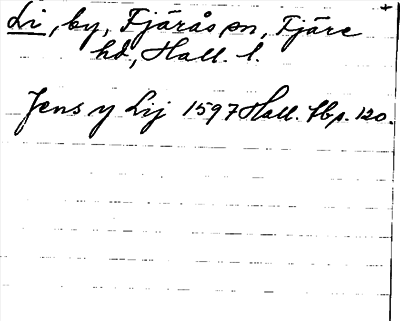 Li, by, Fjärås sn, Fjäre
hd, Hall. l.
Jens y Lij 1597 Hall. tbp. 120.